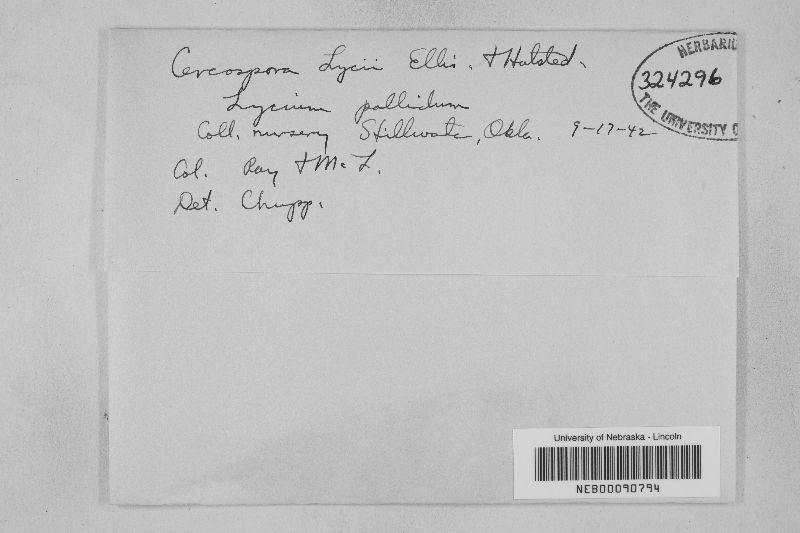 Cercospora Lycii Ellis. & Halsted.
Lycium pallidum
Coll. nursery Stillwater, Okla. 9-17-42
Col. Ray & McL.
Det. Chupp.
HERBARIU
324296
THE UNIVERSITY O
University of Nebraska - Lincoln
NEB00090794